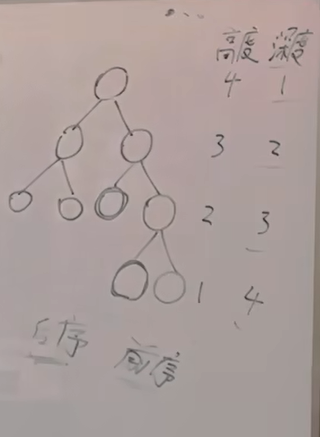 高度 深度
4 1
3 2
2 3
1 4
后序 前序